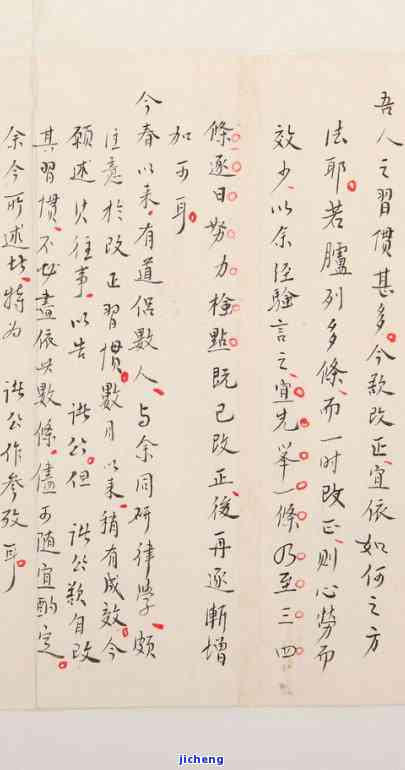 吾人之習慣甚多。今欲改正、宜依如何之方
法耶。若臚列多條、而一時改正、則心勞而
效少、以余經驗言之、宜先舉一條乃至三四
條逐日努力檢點既已改正、後再逐漸增
加可耳。
今春以來、有道侶數人、与余同研律學、頗
注意於改正習慣。數月以來、稍有成效。今
願述其往事、以告　諸公。但　諸公欲自改
其習慣、不必盡依此數條、儘可隨宜酌定。
余今所述者、特為　諸公作參攷耳。
jicheng